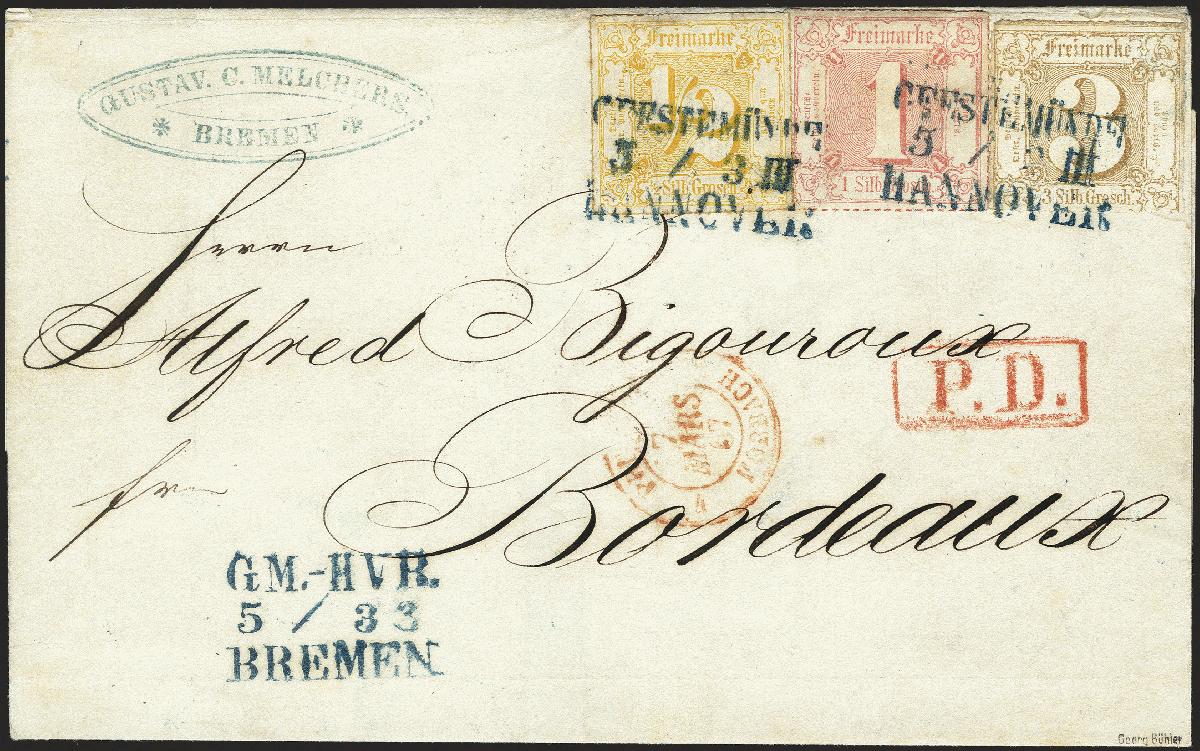 GUSTAV. C. MELCHERS.
* BREMEN *
Freimarke
1/2
Silb. Grosch.
Freimarke
1
1 Silb. Grosch.
Freimarke
3
3 Silb. Grosch.
GEESTEMÜNDE
5 / 3 III
HANNOVER
GEESTEMÜNDE
5 / 3 III
HANNOVER
Herrn
Alfred Bigouroux
P.D.
7
MARS
67
FORBACH
4
Bordeaux
GM.-HVR.
5 / 3 3
BREMEN
Georg Bühler